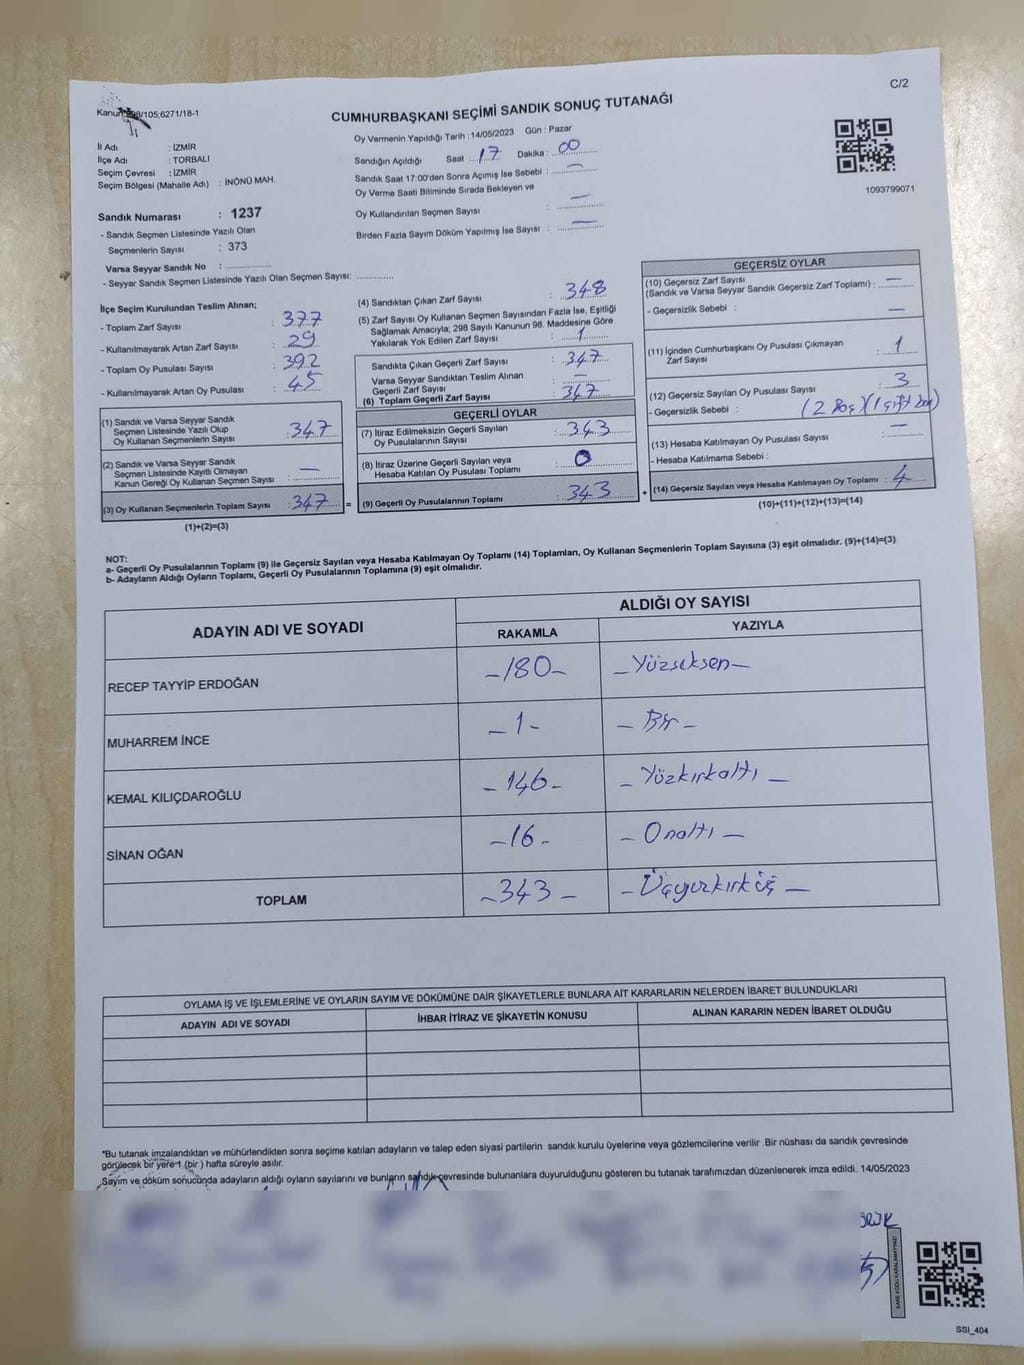 C/2
CUMHURBAŞKANI SEÇİMİ SANDIK SONUÇ TUTANAĞI
Oy Vermenin Yapıldığı Tarih : 14/05/2023 Gün : Pazar
İl Adı : İZMİR
İlçe Adı : TORBALI
Seçim Çevresi : İZMİR
Seçim Bölgesi (Mahalle Adı) : İNÖNÜ MAH.
Sandığın Açıldığı Saat 17 Dakika : 00
Sandık Saat 17:00'den Sonra Açımış İse Sebebi : –
Oy Verme Saati Bitiminde Sırada Bekleyen ve
Oy Kullandırılan Seçmen Sayısı : –
Birden Fazla Sayım Döküm Yapılmış İse Sayısı : –
1093799071
Sandık Numarası : 1237
- Sandık Seçmen Listesinde Yazılı Olan
Seçmenlerin Sayısı : 373
Varsa Seyyar Sandık No :
- Seyyar Sandık Seçmen Listesinde Yazılı Olan Seçmen Sayısı:
İlçe Seçim Kurulundan Teslim Alınan;
- Toplam Zarf Sayısı : 377
- Kullanılmayarak Artan Zarf Sayısı : 29
- Toplam Oy Pusulası Sayısı : 392
- Kullanılmayarak Artan Oy Pusulası : 45
(1) Sandık ve Varsa Seyyar Sandık
Seçmen Listesinde Yazılı Olup
Oy Kullanan Seçmenlerin Sayısı : 347
(2) Sandık ve Varsa Seyyar Sandık
Seçmen Listesinde Kayıtlı Olmayan
Kanun Gereği Oy Kullanan Seçmen Sayısı : –
(3) Oy Kullanan Seçmenlerin Toplam Sayısı : 347 =
(1)+(2)=(3)
(4) Sandıktan Çıkan Zarf Sayısı : 348
(5) Zarf Sayısı Oy Kullanan Seçmen Sayısından Fazla İse, Eşitliği
Sağlamak Amacıyla; 298 Sayılı Kanunun 98. Maddesine Göre
Yakılarak Yok Edilen Zarf Sayısı : 1
Sandıkta Çıkan Geçerli Zarf Sayısı : 347
Varsa Seyyar Sandıktan Teslim Alınan
Geçerli Zarf Sayısı : –
(6) Toplam Geçerli Zarf Sayısı : 347
GEÇERLİ OYLAR
(7) İtiraz Edilmeksizin Geçerli Sayılan
Oy Pusulalarının Sayısı : 343
(8) İtiraz Üzerine Geçerli Sayılan veya
Hesaba Katılan Oy Pusulası Toplamı : 0
(9) Geçerli Oy Pusulalarının Toplamı : 343 +
GEÇERSİZ OYLAR
(10) Geçersiz Zarf Sayısı
(Sandık ve Varsa Seyyar Sandık Geçersiz Zarf Toplamı) : –
- Geçersizlik Sebebi : –
(11) İçinden Cumhurbaşkanı Oy Pusulası Çıkmayan
Zarf Sayısı : 1
(12) Geçersiz Sayılan Oy Pusulası Sayısı : 3
- Geçersizlik Sebebi : (2 Boş)(1 çift
(13) Hesaba Katılmayan Oy Pusulası Sayısı : –
- Hesaba Katılmama Sebebi :
(14) Geçersiz Sayılan veya Hesaba Katılmayan Oy Toplamı : 4
(10)+(11)+(12)+(13)=(14)
NOT:
a- Geçerli Oy Pusulalarının Toplamı (9) ile Geçersiz Sayılan veya Hesaba Katılmayan Oy Toplamı (14) Toplamları, Oy Kullanan Seçmenlerin Toplam Sayısına (3) eşit olmalıdır. (9)+(14)=(3)
b- Adayların Aldığı Oyların Toplamı, Geçerli Oy Pusulalarının Toplamına (9) eşit olmalıdır.
ADAYIN ADI VE SOYADI ALDIĞI OY SAYISI
RAKAMLA YAZIYLA
RECEP TAYYİP ERDOĞAN –180– –Yüzseksen–
MUHARREM İNCE –1– –Bir–
KEMAL KILIÇDAROĞLU –146– –Yüzkırkaltı–
SİNAN OĞAN –16– –Onaltı–
TOPLAM –343– –Üçyüzkırküç–
OYLAMA İŞ VE İŞLEMLERİNE VE OYLARIN SAYIM VE DÖKÜMÜNE DAİR ŞİKAYETLERLE BUNLARA AİT KARARLARIN NELERDEN İBARET BULUNDUKLARI
ADAYIN ADI VE SOYADI İHBAR İTİRAZ VE ŞİKAYETİN KONUSU ALINAN KARARIN NEDEN İBARET OLDUĞU
*Bu tutanak imzalandıktan ve mühürlendikten sonra seçime katılan adayların ve talep eden siyasi partilerin sandık kurulu üyelerine veya gözlemcilerine verilir .Bir nüshası da sandık çevresinde
görülecek bir yere 1 (bir ) hafta süreyle asılır.
Sayım ve döküm sonucunda adayların aldığı oyların sayılarını ve bunların sandık çevresinde bulunanlara duyurulduğunu gösteren bu tutanak tarafımızdan düzenlenerek imza edildi. 14/05/2023
KARE KODU KARALAMAYINIZ!
SSI_404